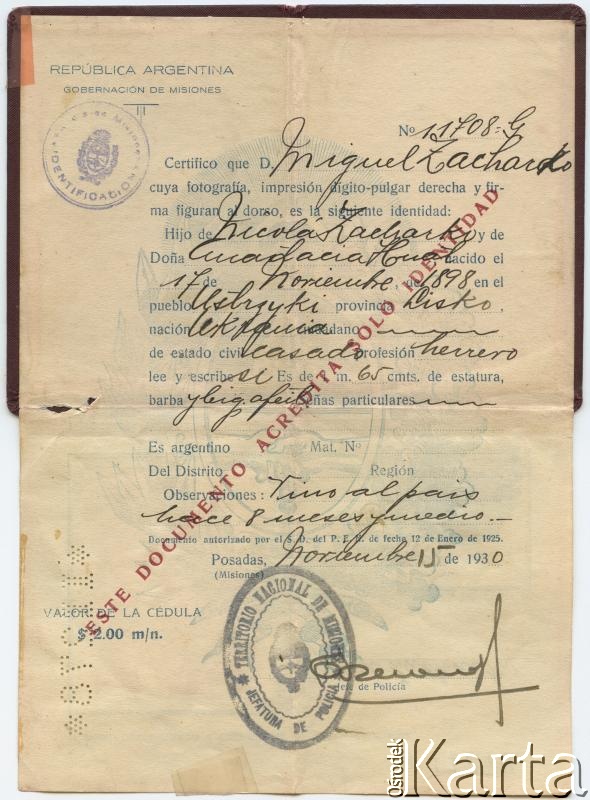 REPÚBLICA ARGENTINA
GOBERNACIÓN DE MISIONES
IDENTIFICACIÓN
No 11708=G
Certifico que D. Miguel Zacharko
cuya fotografía, impresión dígito-pulgar derecha y fir-
ma figuran al dorso, es la siguiente identidad:
Hijo de Nicolás Zacharko y de
Doña nacido el
17 de Noviembre de 1898 en el
pueblo Ustrzyki provincia Lisko
nación Ukrania ciudadano
de estado civil casado profesión herrero
lee y escribe si Es de 1 m. 65 cmts. de estatura,
barba y big. afeit. señas particulares
Es argentino Mat. No
Del Distrito Región
Observaciones: Vino al país
hace 8 meses y medio.—
Documento autorizado por el S. D. del P. E. N. de fecha 12 de Enero de 1925.
Posadas, Noviembre 15 de 1930
(Misiones)
VALOR DE LA CÉDULA
$ 2.00 m/n.
ESTE DOCUMENTO ACREDITA SOLO IDENTIDAD
TERRITORIO NACIONAL DE MISIONES
JEFATURA DE POLICIA
Jefe de Policía
Ośrodek
Karta